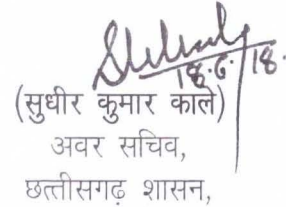 18.6.18.
(सुधीर कुमार काले)
अवर सचिव,
छत्तीसगढ़ शासन,